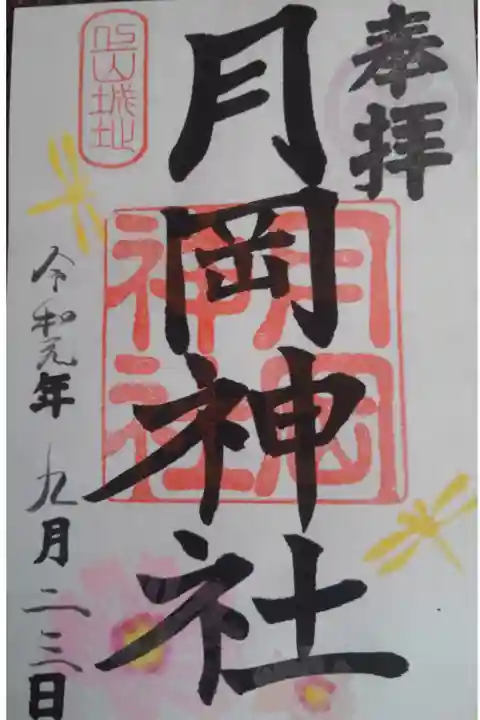 奉拝
月岡神社
月岡
神社
上山城址
令和元年九月二三日